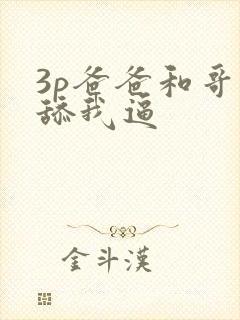 3p爸爸和哥
舔我逼
金斗漢